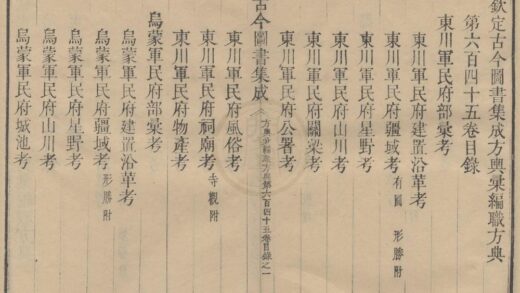 欽定古今圖書集成方輿彙編職方典
第六百四十五卷目錄
東川軍民府部彙考
東川軍民府建置沿革考
東川軍民府疆域考 有圖 形勝附
東川軍民府星野考
東川軍民府山川考
東川軍民府關梁考
東川軍民府公署考
古今圖書集成
方輿彙編職方典第六百四十五卷目錄之一
東川軍民府風俗考
東川軍民府祠廟考 寺觀附
東川軍民府物產考
烏蒙軍民府部彙考
烏蒙軍民府建置沿革考
烏蒙軍民府疆域考 形勝附
烏蒙軍民府星野考
烏蒙軍民府山川考
烏蒙軍民府城池考